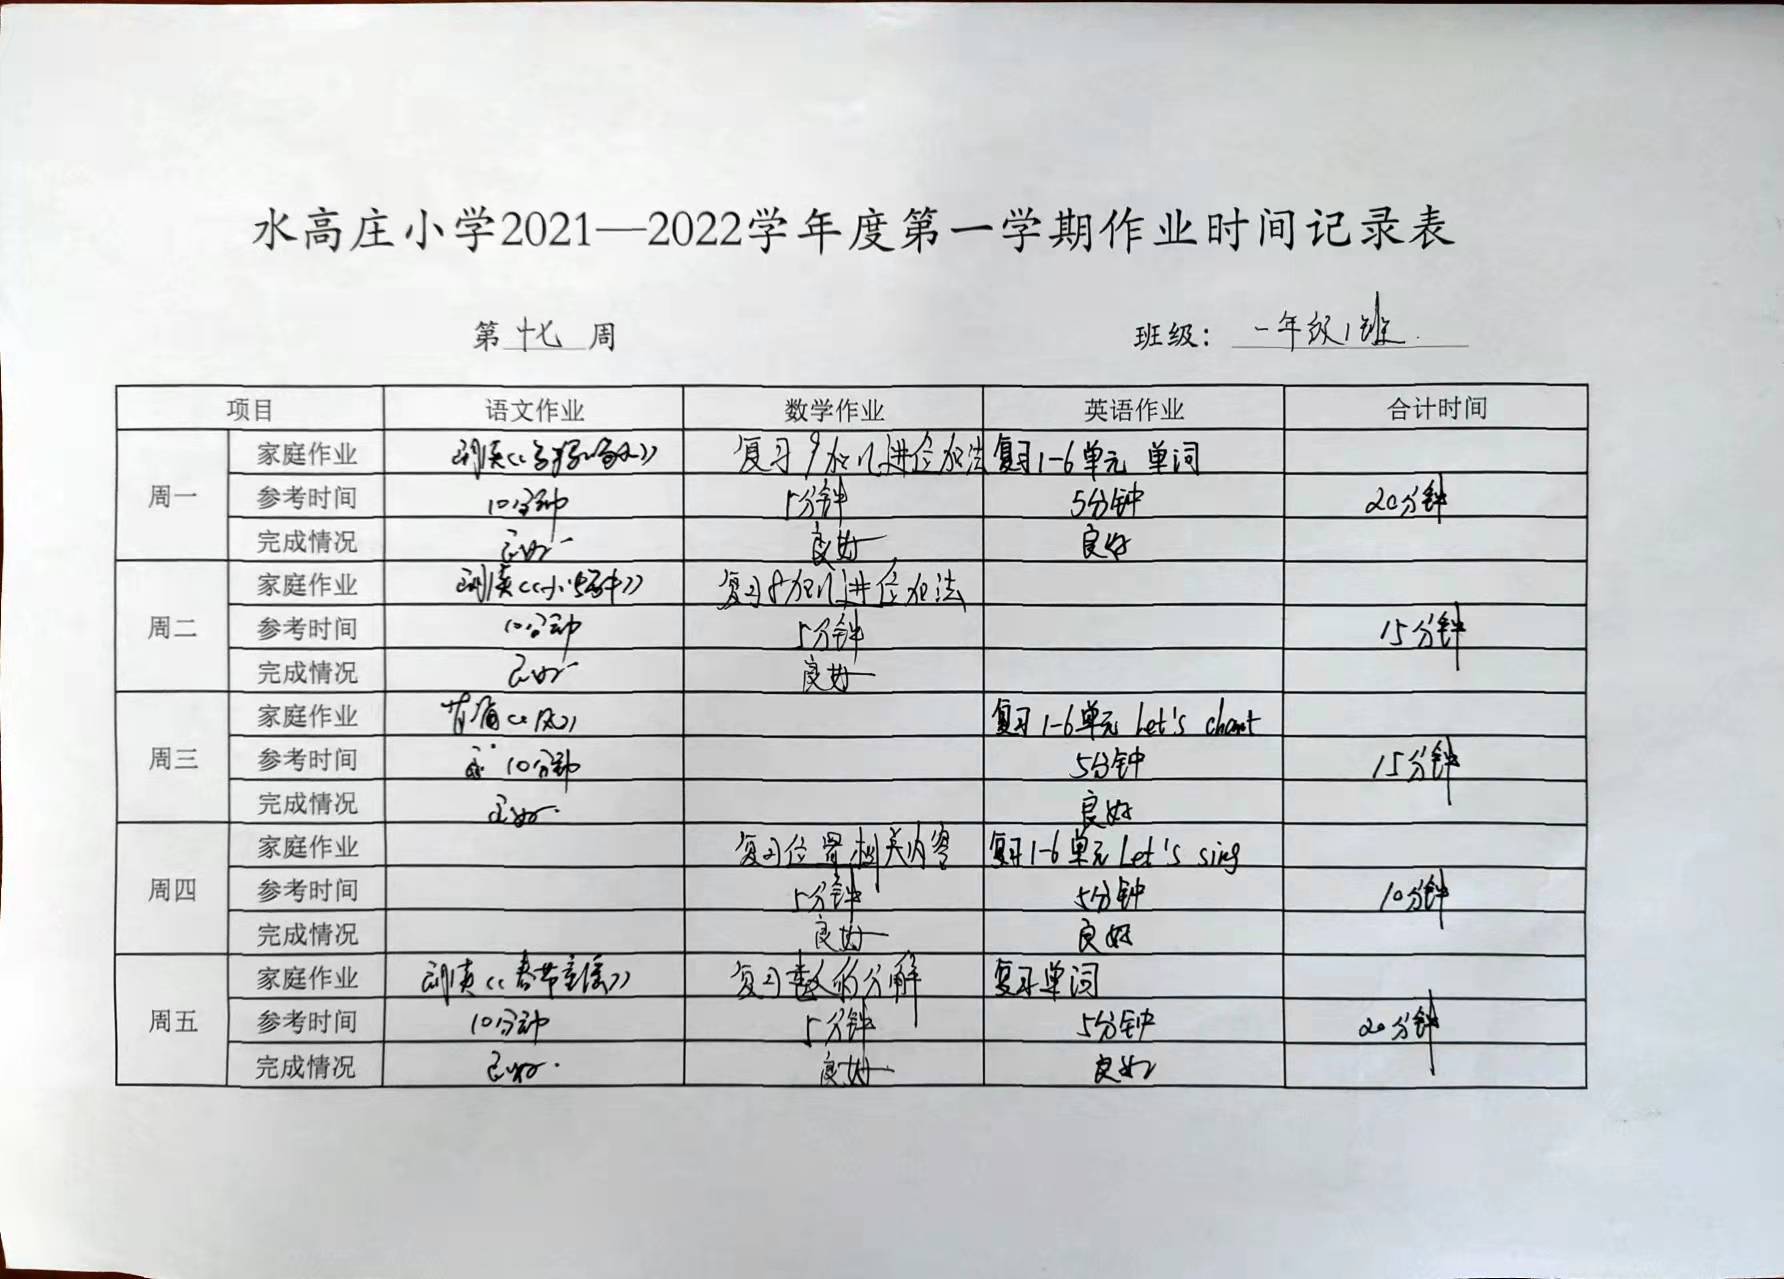 水高庄小学2021—2022学年度第一学期作业时间记录表
第 十七 周 班级： 一年级1班
项目 语文作业 数学作业 英语作业 合计时间
周一 家庭作业 朗读《乌鸦喝水》 复习9加几进位加法 复习1-6单元 单词
参考时间 10分钟 5分钟 5分钟 20分钟
完成情况 良好 良好 良好
周二 家庭作业 朗读《小蜗牛》 复习8加几进位加法
参考时间 10分钟 5分钟 15分钟
完成情况 良好 良好
周三 家庭作业 背诵《风》 复习1-6单元 Let's chant
参考时间 10分钟 5分钟 15分钟
完成情况 良好 良好
周四 家庭作业 复习位置相关内容 复习1-6单元 Let's sing
参考时间 5分钟 5分钟 10分钟
完成情况 良好 良好
周五 家庭作业 朗读《春节童谣》 复习数的分解 复习单词
参考时间 10分钟 5分钟 5分钟 20分钟
完成情况 良好 良好 良好